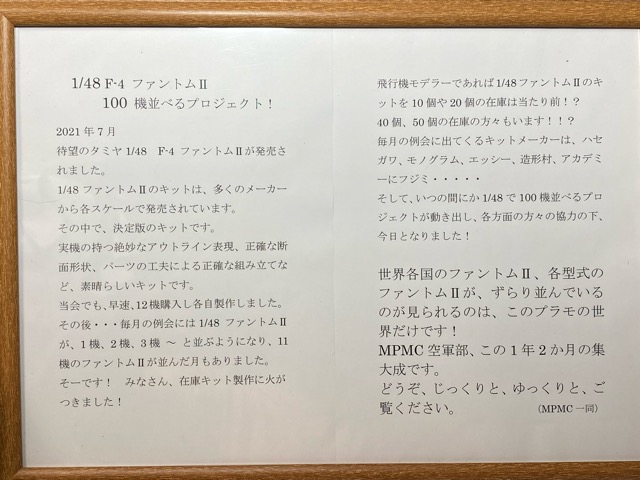 1/48 F-4 ファントムⅡ
100 機並べるプロジェクト！
2021 年 7 月
待望のタミヤ 1/48 F-4 ファントムⅡが発売さ
れました。
1/48 ファントムⅡのキットは、多くのメーカー
から各スケールで発売されています。
その中で、決定版のキットです。
実機の持つ絶妙なアウトライン表現、正確な断
面形状、パーツの工夫による正確な組み立てな
ど、素晴らしいキットです。
当会でも、早速、12機購入し各自製作しました。
その後・・・毎月の例会には 1/48 ファントムⅡ
が、1機、2機、3機 ～ と並ぶようになり、11
機のファントムⅡが並んだ月もありました。
そーです！ みなさん、在庫キット製作に火が
つきました！
飛行機モデラーであれば 1/48 ファントムⅡのキ
ットを 10 個や 20 個の在庫は当たり前！？
40 個、50 個の在庫の方々もいます！！？
毎月の例会に出てくるキットメーカーは、ハセ
ガワ、モノグラム、エッシー、造形村、アカデミ
ーにフジミ・・・・・
そして、いつの間にか 1/48 で 100 機並べるプロ
ジェクトが動き出し、各方面の方々の協力の下、
今日となりました！
世界各国のファントムⅡ、各型式の
ファントムⅡが、ずらり並んでいる
のが見られるのは、このプラモの世
界だけです！
MPMC 空軍部、この 1 年 2 か月の集
大成です。
どうぞ、じっくりと、ゆっくりと、ご
覧ください。 （MPMC 一同）